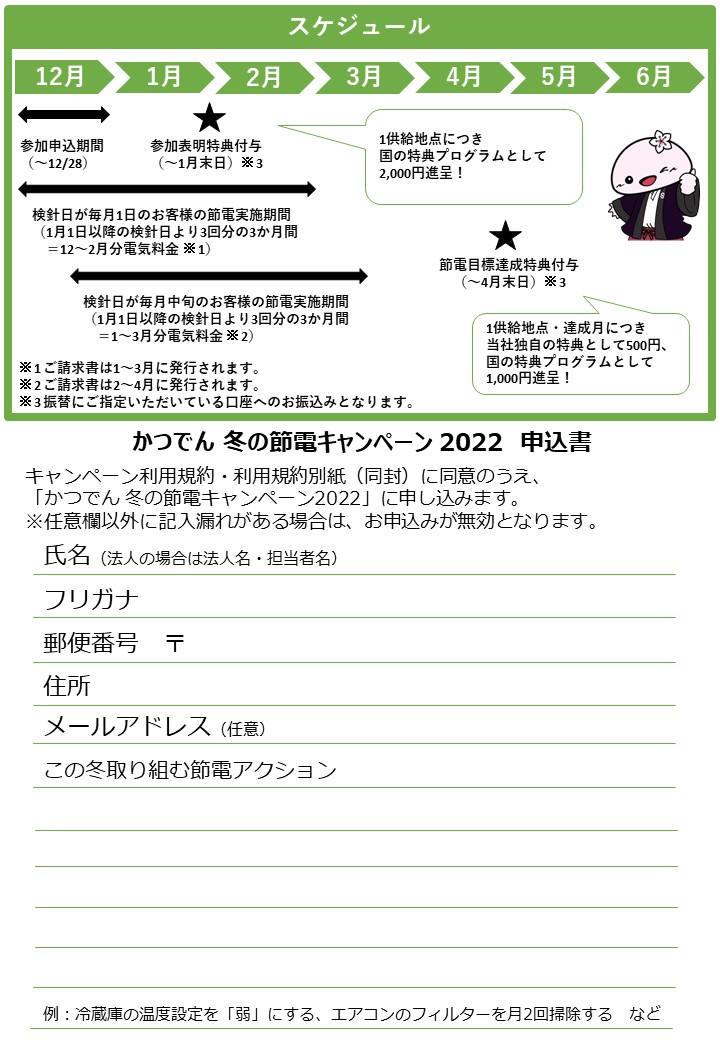 スケジュール
12月
1月
2月
3月
4月
5月
6月
参加申込期間
（～12/28）
参加表明特典付与
（～1月末日）※3
1供給地点につき
国の特典プログラムとして
2,000円進呈！
検針日が毎月1日のお客様の節電実施期間
（1月1日以降の検針日より3回分の3か月間
＝12～2月分電気料金 ※1）
節電目標達成特典付与
（～4月末日）※3
検針日が毎月中旬のお客様の節電実施期間
（1月1日以降の検針日より3回分の3か月間
＝1～3月分電気料金 ※2）
1供給地点・達成月につき
当社独自の特典として500円、
国の特典プログラムとして
1,000円進呈！
※1ご請求書は1～3月に発行されます。
※2ご請求書は2～4月に発行されます。
※3振替にご指定いただいている口座へのお振込みとなります。
かつでん 冬の節電キャンペーン 2022 申込書
キャンペーン利用規約・利用規約別紙（同封）に同意のうえ、
「かつでん 冬の節電キャンペーン2022」に申し込みます。
※任意欄以外に記入漏れがある場合は、お申込みが無効となります。
氏名（法人の場合は法人名・担当者名）
フリガナ
郵便番号 〒
住所
メールアドレス（任意）
この冬取り組む節電アクション
例：冷蔵庫の温度設定を「弱」にする、エアコンのフィルターを月2回掃除する など